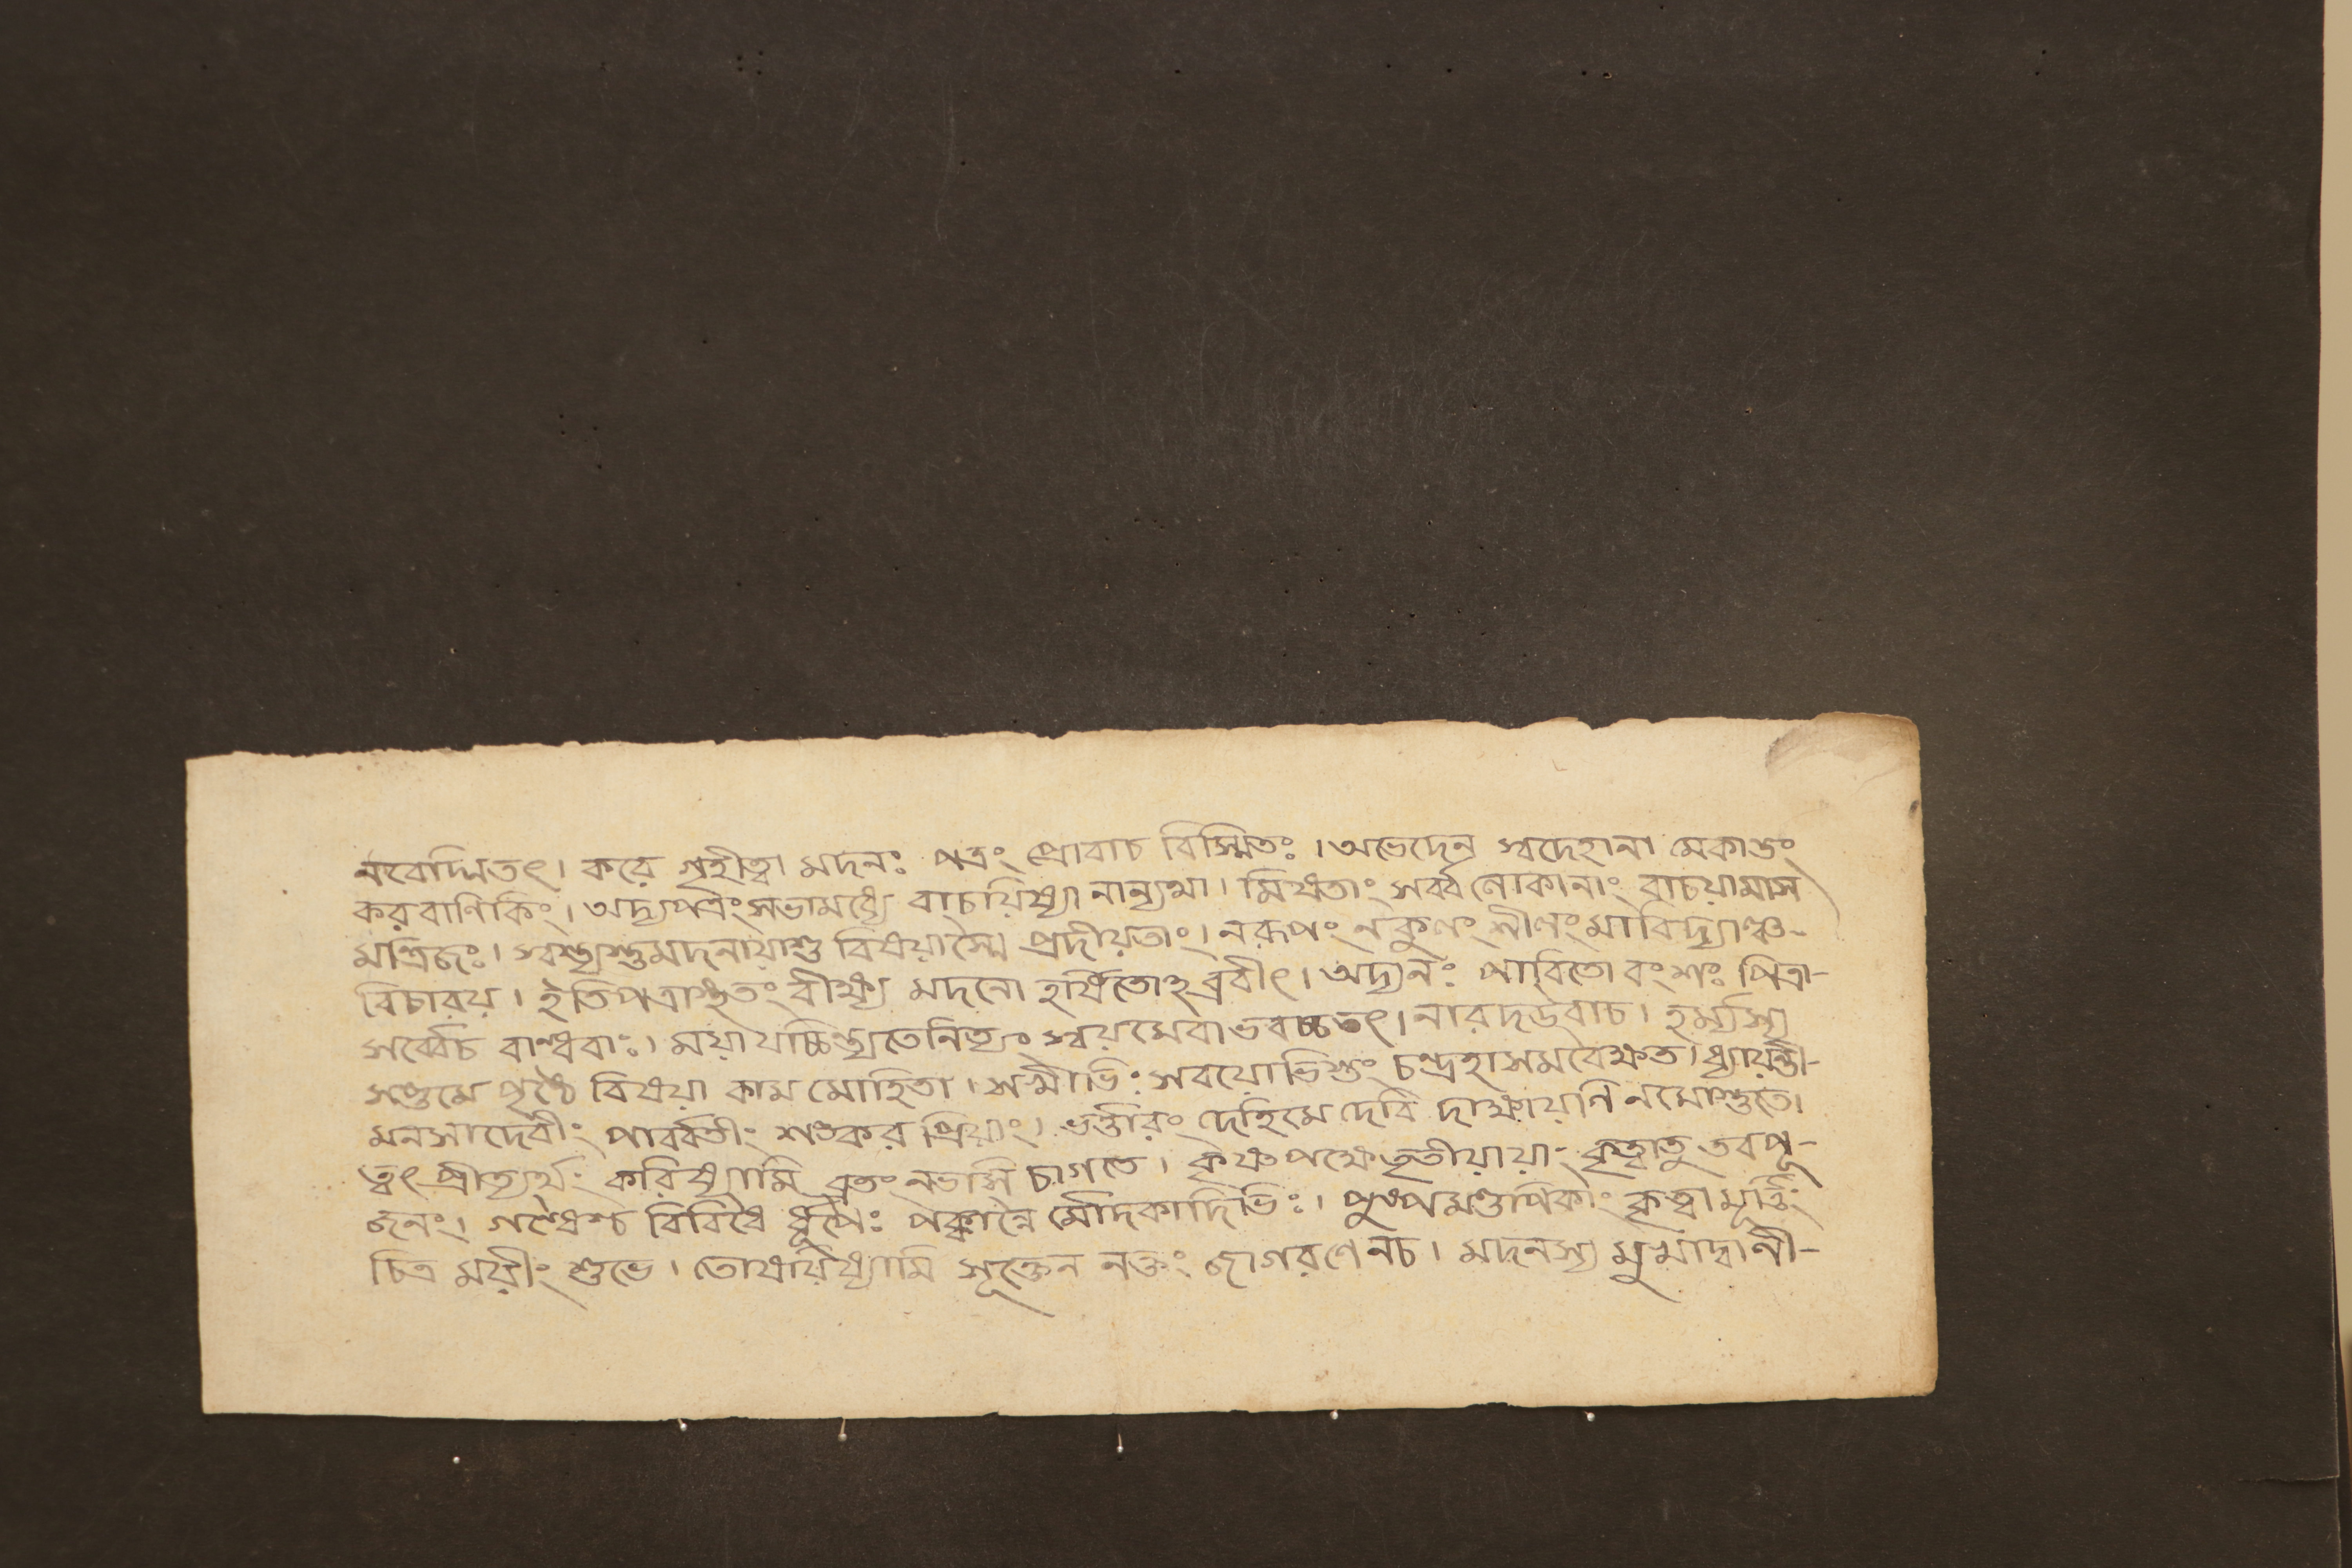 নবোদ্মিতৎ। করে গৃহীত্বা মদনঃ পত্রং প্রোবাচ বিস্মিতঃ। অভেদেন স্বদেহানা মেকাঙ্গং
করবাণিকিং। অদ্যপত্রংসভামধ্যে বাচয়িষ্যা নান্যথা। মিষতাং সর্ব্বলোকানাং বাচয়ামাস
মন্ত্রিজঃ। স্বস্ত্যস্তুমদনায়াশু বিষয়াস্মৈ প্রদীয়তাং। নরূপং নকুলং শীলং মাবিদ্যাঞ্চ-
বিচারয়। ইতিপত্রাস্থতং বীক্ষ্য মদনো হর্ষিতোহব্রবীৎ। অদ্যনঃ পাবিতো বংশঃ পিত্রা-
সর্ব্বেচ বান্ধবাঃ। ময়াযচ্চিন্ত্যতেনিত্যং স্বয়মেবাভবচ্চতৎ। নারদউবাচ। হর্ম্যস্য
সপ্তমে পৃষ্ঠে বিষয়া কাম মোহিতা। সখীভিঃ সবয়োভিস্তং চন্দ্রহাসমবৈক্ষত। ধ্যায়ন্তী-
মনসাদেবীং পার্ব্বতীং শঙ্কর প্রিয়াং। ভর্ত্তারং দেহিমে দেবি দাক্ষায়ণি নমোস্তুতে।
ত্বৎ প্রীত্যর্থং করিষ্যামি ব্রতং নভসি চাগতে। কৃষ্ণপক্ষেতৃতীয়ায়াং কৃত্বাতু তবপূ-
জনং। গন্ধৈশ্চ বিবিধৈ র্ধূপৈঃ পক্বান্নৈ র্মোদকাদিভিঃ। পুষ্পমণ্ডপিকাং কৃত্বা মূর্ত্তিং
চিত্র ময়ীং শুভে। তোষয়িষ্যামি সূক্তেন নক্তং জাগরণেনচ। মদনস্য মুখাদ্বাণী-